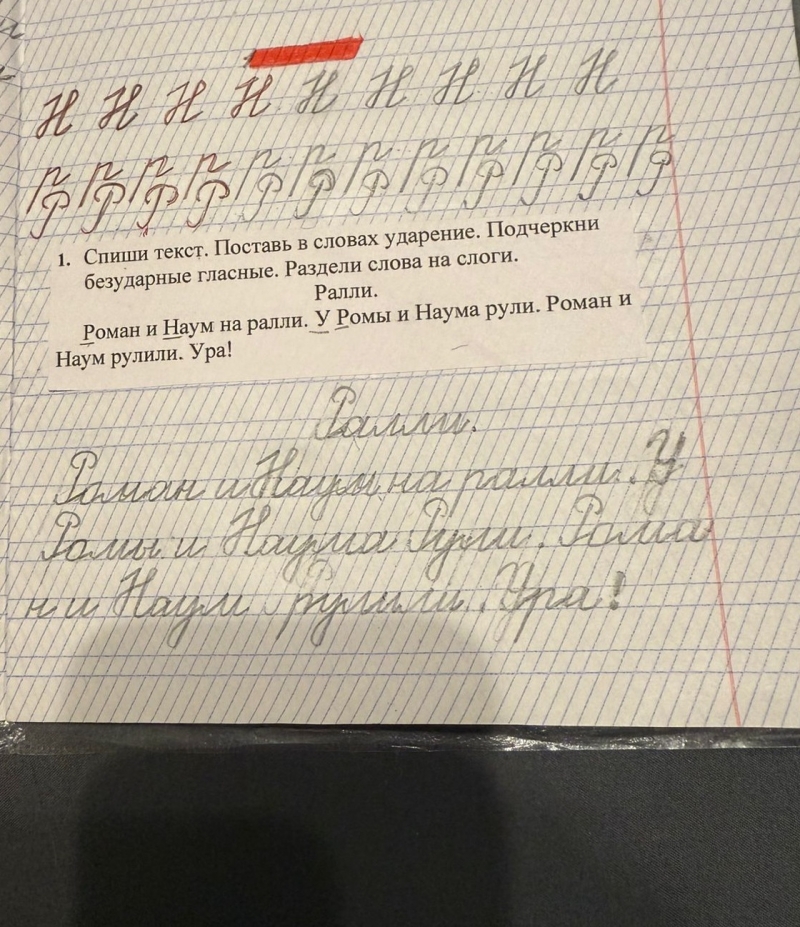 Н Н Н Н Н Н Н Н Н
Р Р Р Р Р Р Р Р Р Р Р Р
1. Спиши текст. Поставь в словах ударение. Подчеркни
безударные гласные. Раздели слова на слоги.
Ралли.
Роман и Наум на ралли. У Ромы и Наума рули. Роман и
Наум рулили. Ура!
Ралли.
Роман и Наум на ралли. У
Ромы и Наума Рули. Рома
н и Наум рулили. Ура!